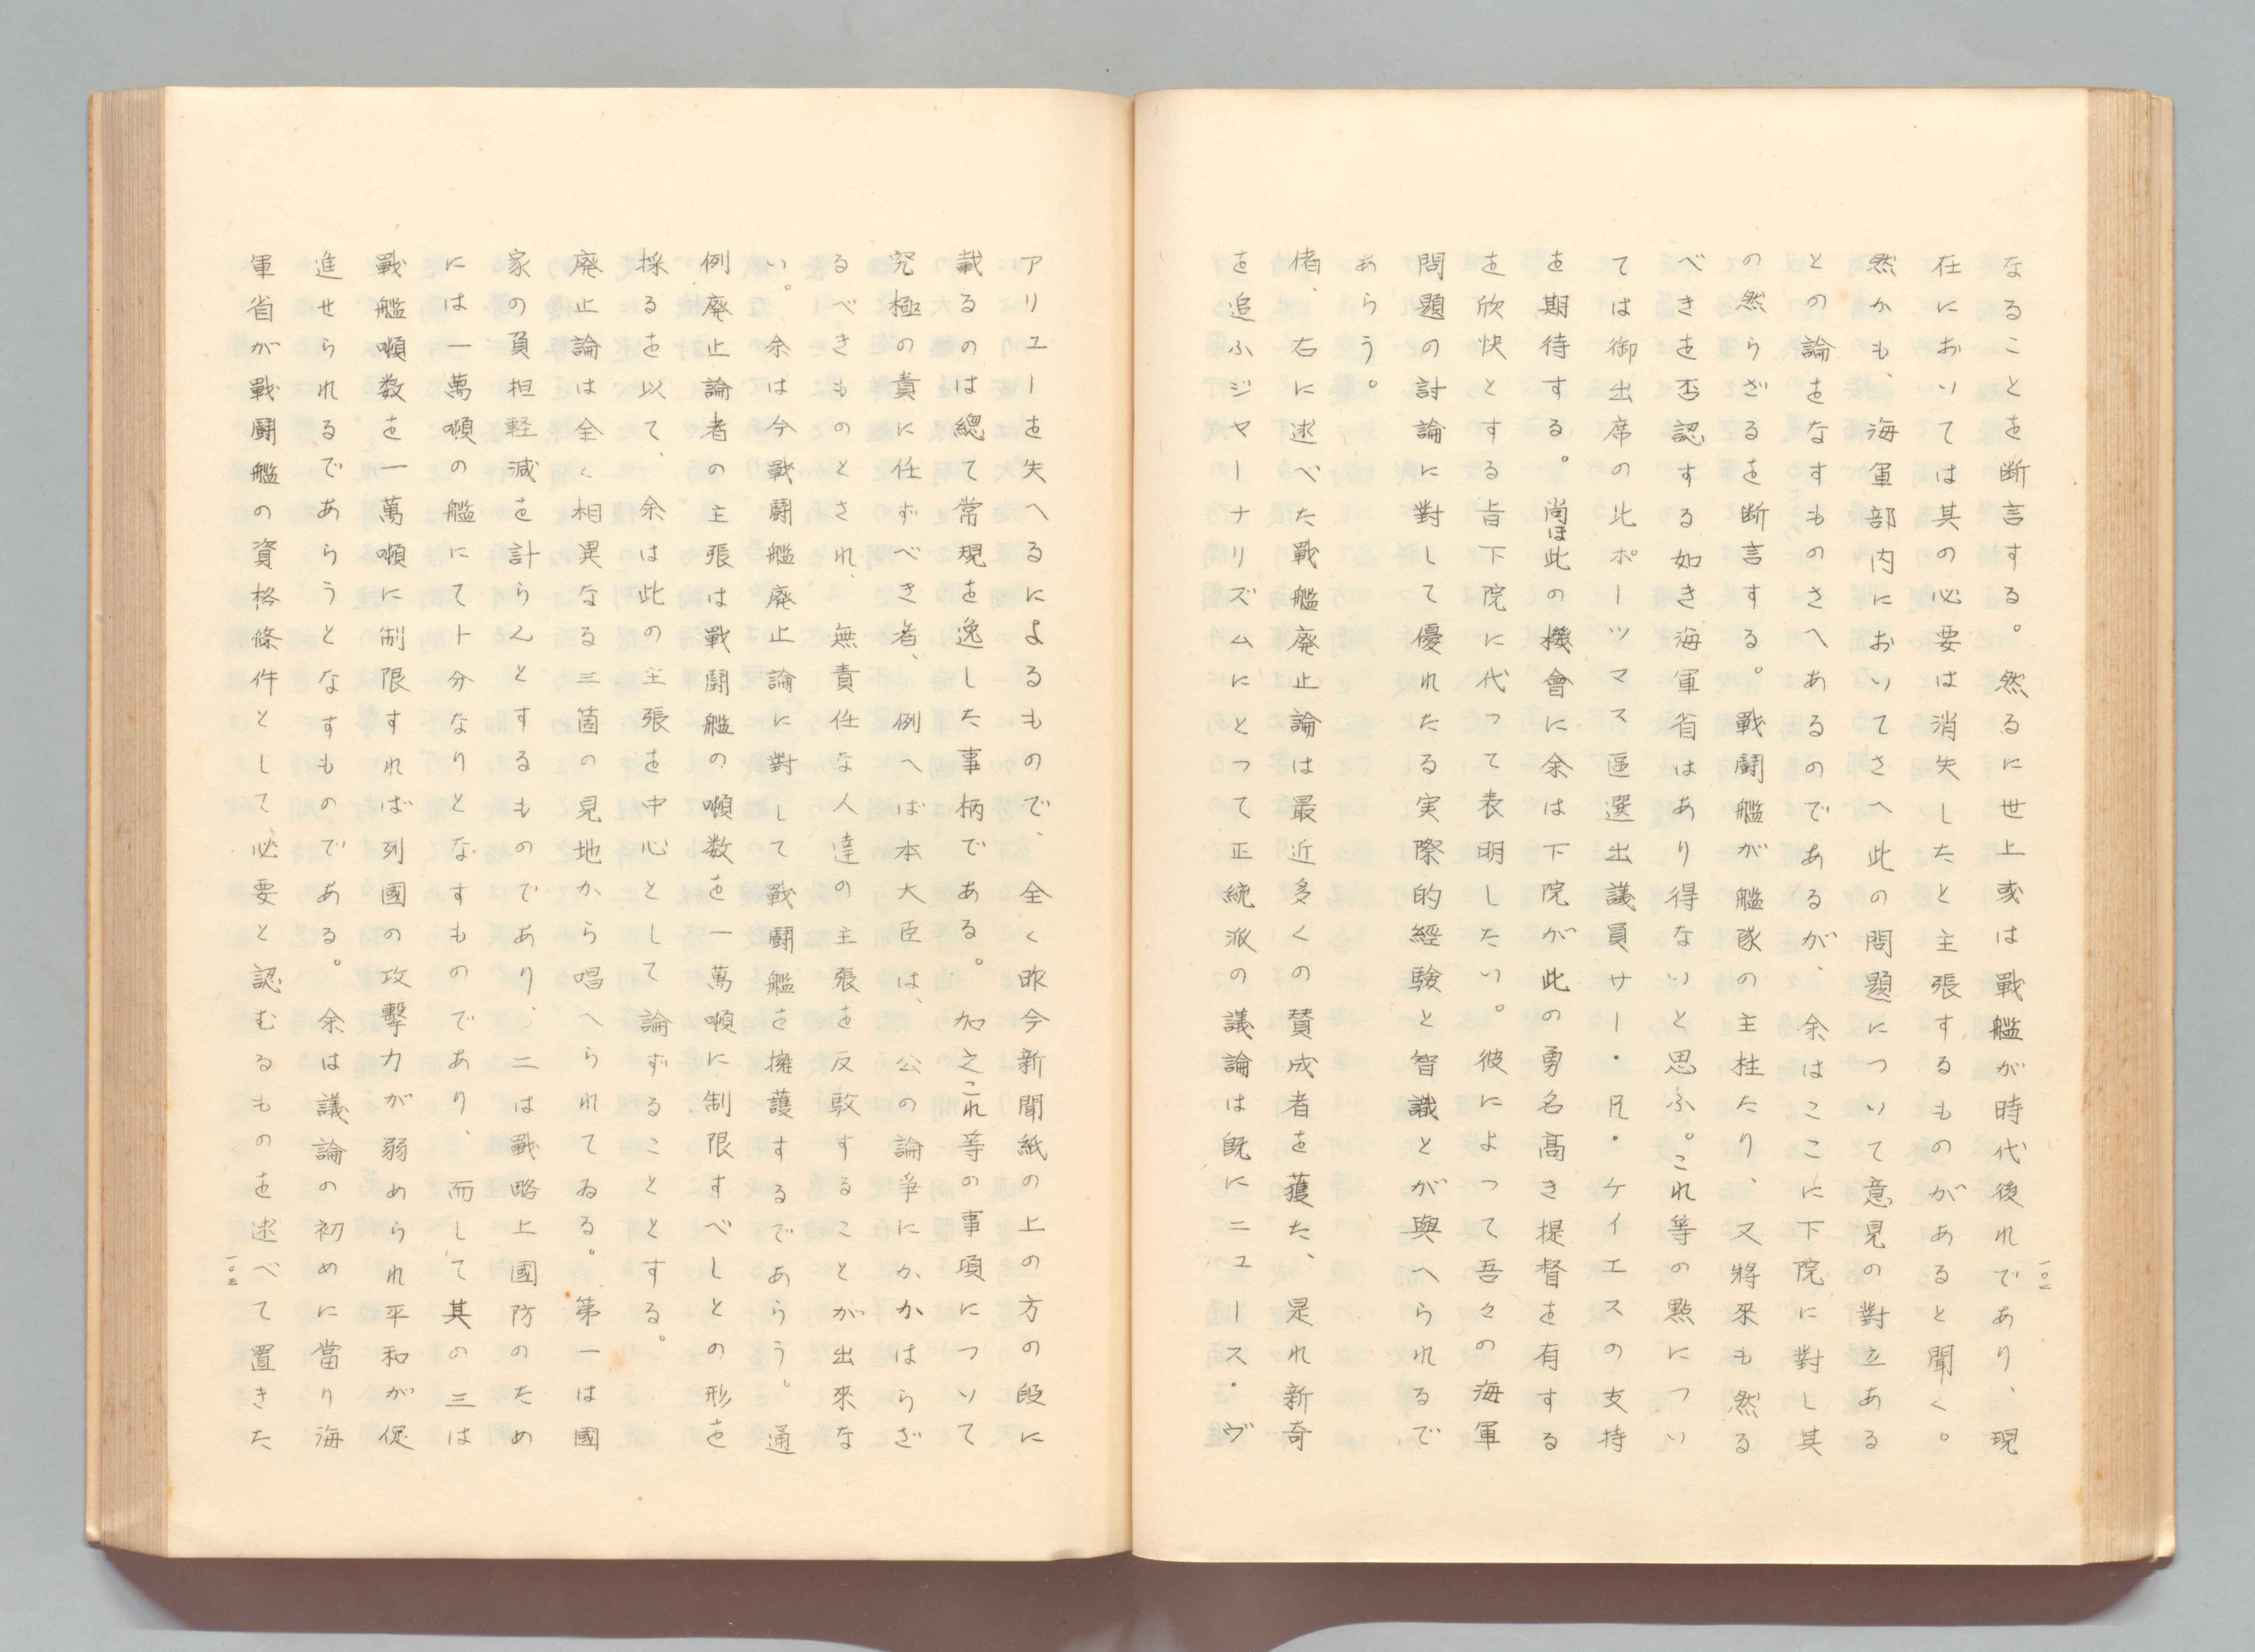 なることを断言する。然るに世上或は戰艦が時代後れであり、現
在においては其の必要は消失したと主張するものがあると聞く。
然かも、海軍部内においてさへ此の問題について意見の對立ある
との論をなすものさへあるのであるが、余はここに下院に對し其
の然らざるを断言する。戰闘艦が艦隊の主柱たり、又將來も然る
べきを否認する如き海軍省はあり得ないと思ふ。これ等の點につい
ては御出席の此ポーツマス區選出議員サー・兄・ケイエスの支持
を期待する。尚ほ此の機會に余は下院が此の勇名高き提督を有する
を欣快とする旨下院に代って表明したい。彼によって吾々の海軍
問題の討論に對して優れたる実際的經験と智識とが與へられるで
あらう。
偖、右に逑べた戰艦廃止論は最近多くの賛成者を獲た、是れ新奇
を追ふジャーナリズムにとって正統派の議論は既にニュース・ヴ
一〇二
アリューを失へるによるもので、全く昨今新聞紙の上の方の段に
載るのは總て常現を逸した事柄である。加之これ等の事項について
究極の責に任ずべき者、例へば本大臣は、公の論爭にかかはらざ
るべきものとされ、無責任な人達の主張を反駁することが出來な
い。余は今戰闘艦廃止論に對して戰闘艦を擁護するであらう。通
例廃止論者の主張は戰闘艦の噸数を一萬噸に制限すべしとの形を
採るを以て、余は此の主張を中心として論ずることとする。
廃止論は全く相異なる三箇の見地から唱へられてゐる。第一は國
家の負担軽減を計らんとするものであり、二は戰略上國防のため
には一萬噸の艦にて十分なりとなすものであり、而して其の三は
戰艦噸数を一萬噸に制限すれば列國の攻擊力が弱められ平和が促
進せられるであらうとなすものである。余は議論の初めに當り海
軍省が戰闘艦の資格條件として必要と認むるものを逑べて置きた
一〇三